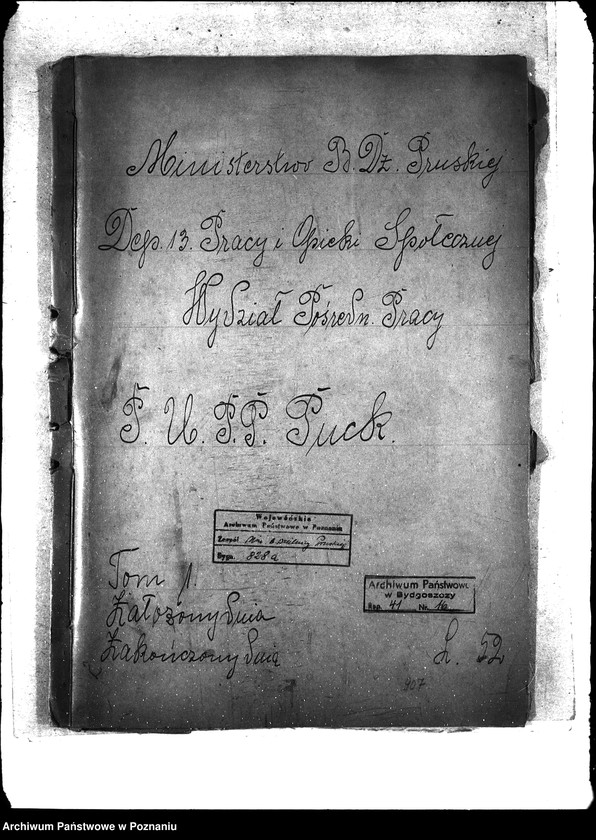 Ministerstwo B. Dz. Pruskiej
Dep. 13. Pracy i Opieki Społecznej
Wydział Pośredn. Pracy
P. U. P. P. Puck.
Wojewódzkie
Archiwum Państwowe w Poznaniu
Zespół Min. b. Dzielnicy Pruskiej
Sygn. 828a
Tom 1.
Założony dnia
Zakończony dnia
Archiwum Państwowe
w Bydgoszczy
Rep. 41 Nr. 16
L. 52
907
Archiwum Państwowe w Poznaniu